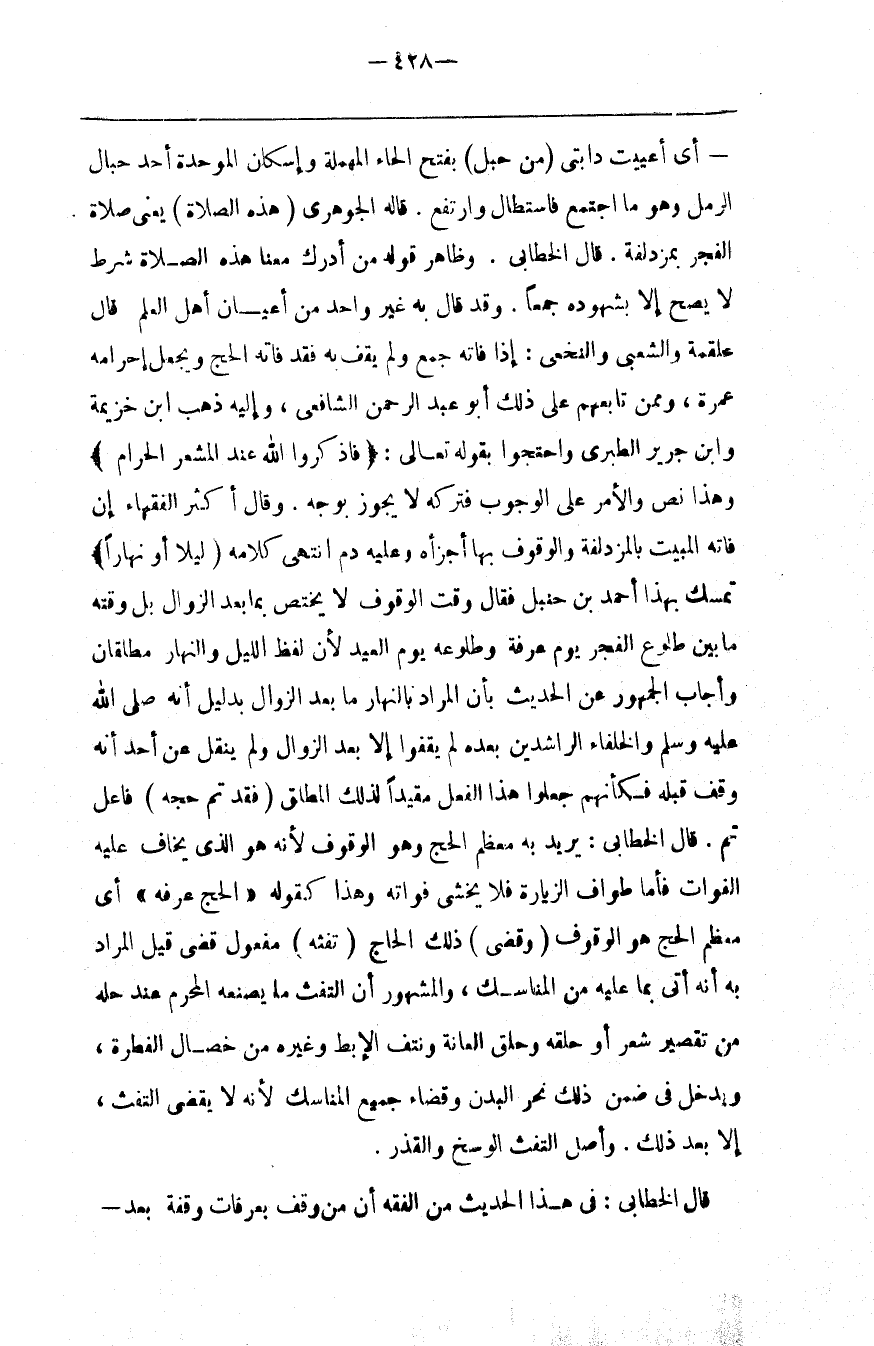 — ٤٢٨ —
— أى أعييت دابتى (من حبل) بفتح الحاء المهملة وإسكان الموحدة أحد حبال
الرمل وهو ما اجتمع فاستطال وارتفع . قاله الجوهرى ( هذه الصلاة ) يعنى صلاة
الفجر بمزدلفة . قال الخطابى . وظاهر قوله من أدرك معنا هذه الصلاة شرط
لا يصح إلا بشهوده جمعاً . وقد قال به غير واحد من أعيان أهل العلم قال
علقمة والشعبى والنخعى : إذا فاته جمع ولم يقف به فقد فاته الحج ويجعل إحرامه
عمرة ، وممن تابعهم على ذلك أبو عبد الرحمن الشافعى ، وإليه ذهب ابن خزيمة
وابن جرير الطبرى واحتجوا بقوله تعالى : ﴿ فاذكروا الله عند المشعر الحرام ﴾
وهذا نص والأمر على الوجوب فتركه لا يجوز بوجه . وقال أكثر الفقهاء إن
فاته المبيت بالمزدلفة والوقوف بها أجزأه وعليه دم انتهى كلامه ( ليلا أو نهاراً﴾
تمسك بهذا أحمد بن حنبل فقال وقت الوقوف لا يختص بما بعد الزوال بل وقته
ما بين طلوع الفجر يوم عرفة وطلوعه يوم العيد لأن لفظ الليل والنهار مطلقان
وأجاب الجمهور عن الحديث بأن المراد بالنهار ما بعد الزوال بدليل أنه صلى الله
عليه وسلم والخلفاء الراشدين بعده لم يقفوا إلا بعد الزوال ولم ينقل عن أحد أنه
وقف قبله فكأنهم جعلوا هذا الفعل مقيداً لذلك المطلق ( فقد تم حجه ) فاعل
تم . قال الخطابى : يريد به معظم الحج وهو الوقوف لأنه هو الذى يخاف عليه
الفوات فأما طواف الزيارة فلا يخشى فواته وهذا كقوله « الحج عرفه » أى
معظم الحج هو الوقوف ( وقضى ) ذلك الحاج ( تفثه ) مفعول قضى قيل المراد
به أنه أتى بما عليه من المناسك ، والمشهور أن التفث ما يصنعه المحرم عند حله
من تقصير شعر أو حلقه وحلق العانة ونتف الإبط وغيره من خصال الفطرة ،
ويدخل فى ضمن ذلك نحر البدن وقضاء جميع المناسك لأنه لا يقضى التفث ،
إلا بعد ذلك . وأصل التفث الوسخ والقذر .
قال الخطابى : فى هذا الحديث من الفقه أن من وقف بعرفات وقفة بعد —